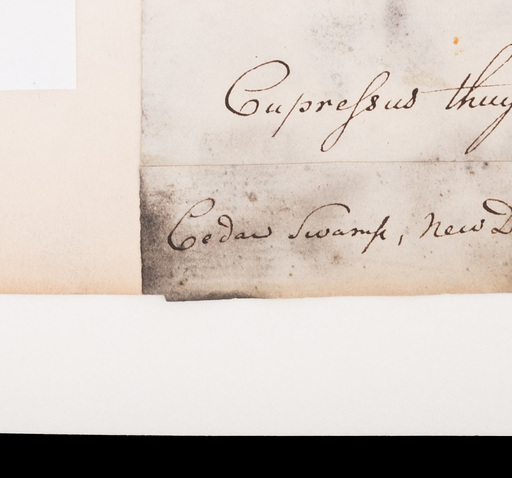 Cupressus thuy
Cedar Swamp, New D